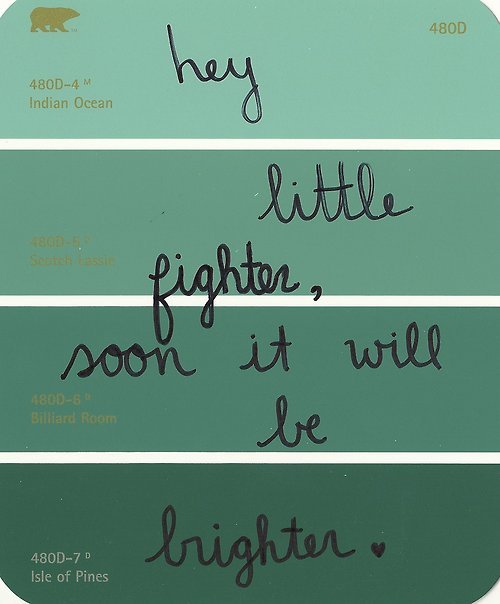 480D
hey
480D-4 M
Indian Ocean
little
480D-5 D
Scotch Lassie
fighter,
soon it will
480D-6 D
Billiard Room
be
brighter. ♥
480D-7 D
Isle of Pines